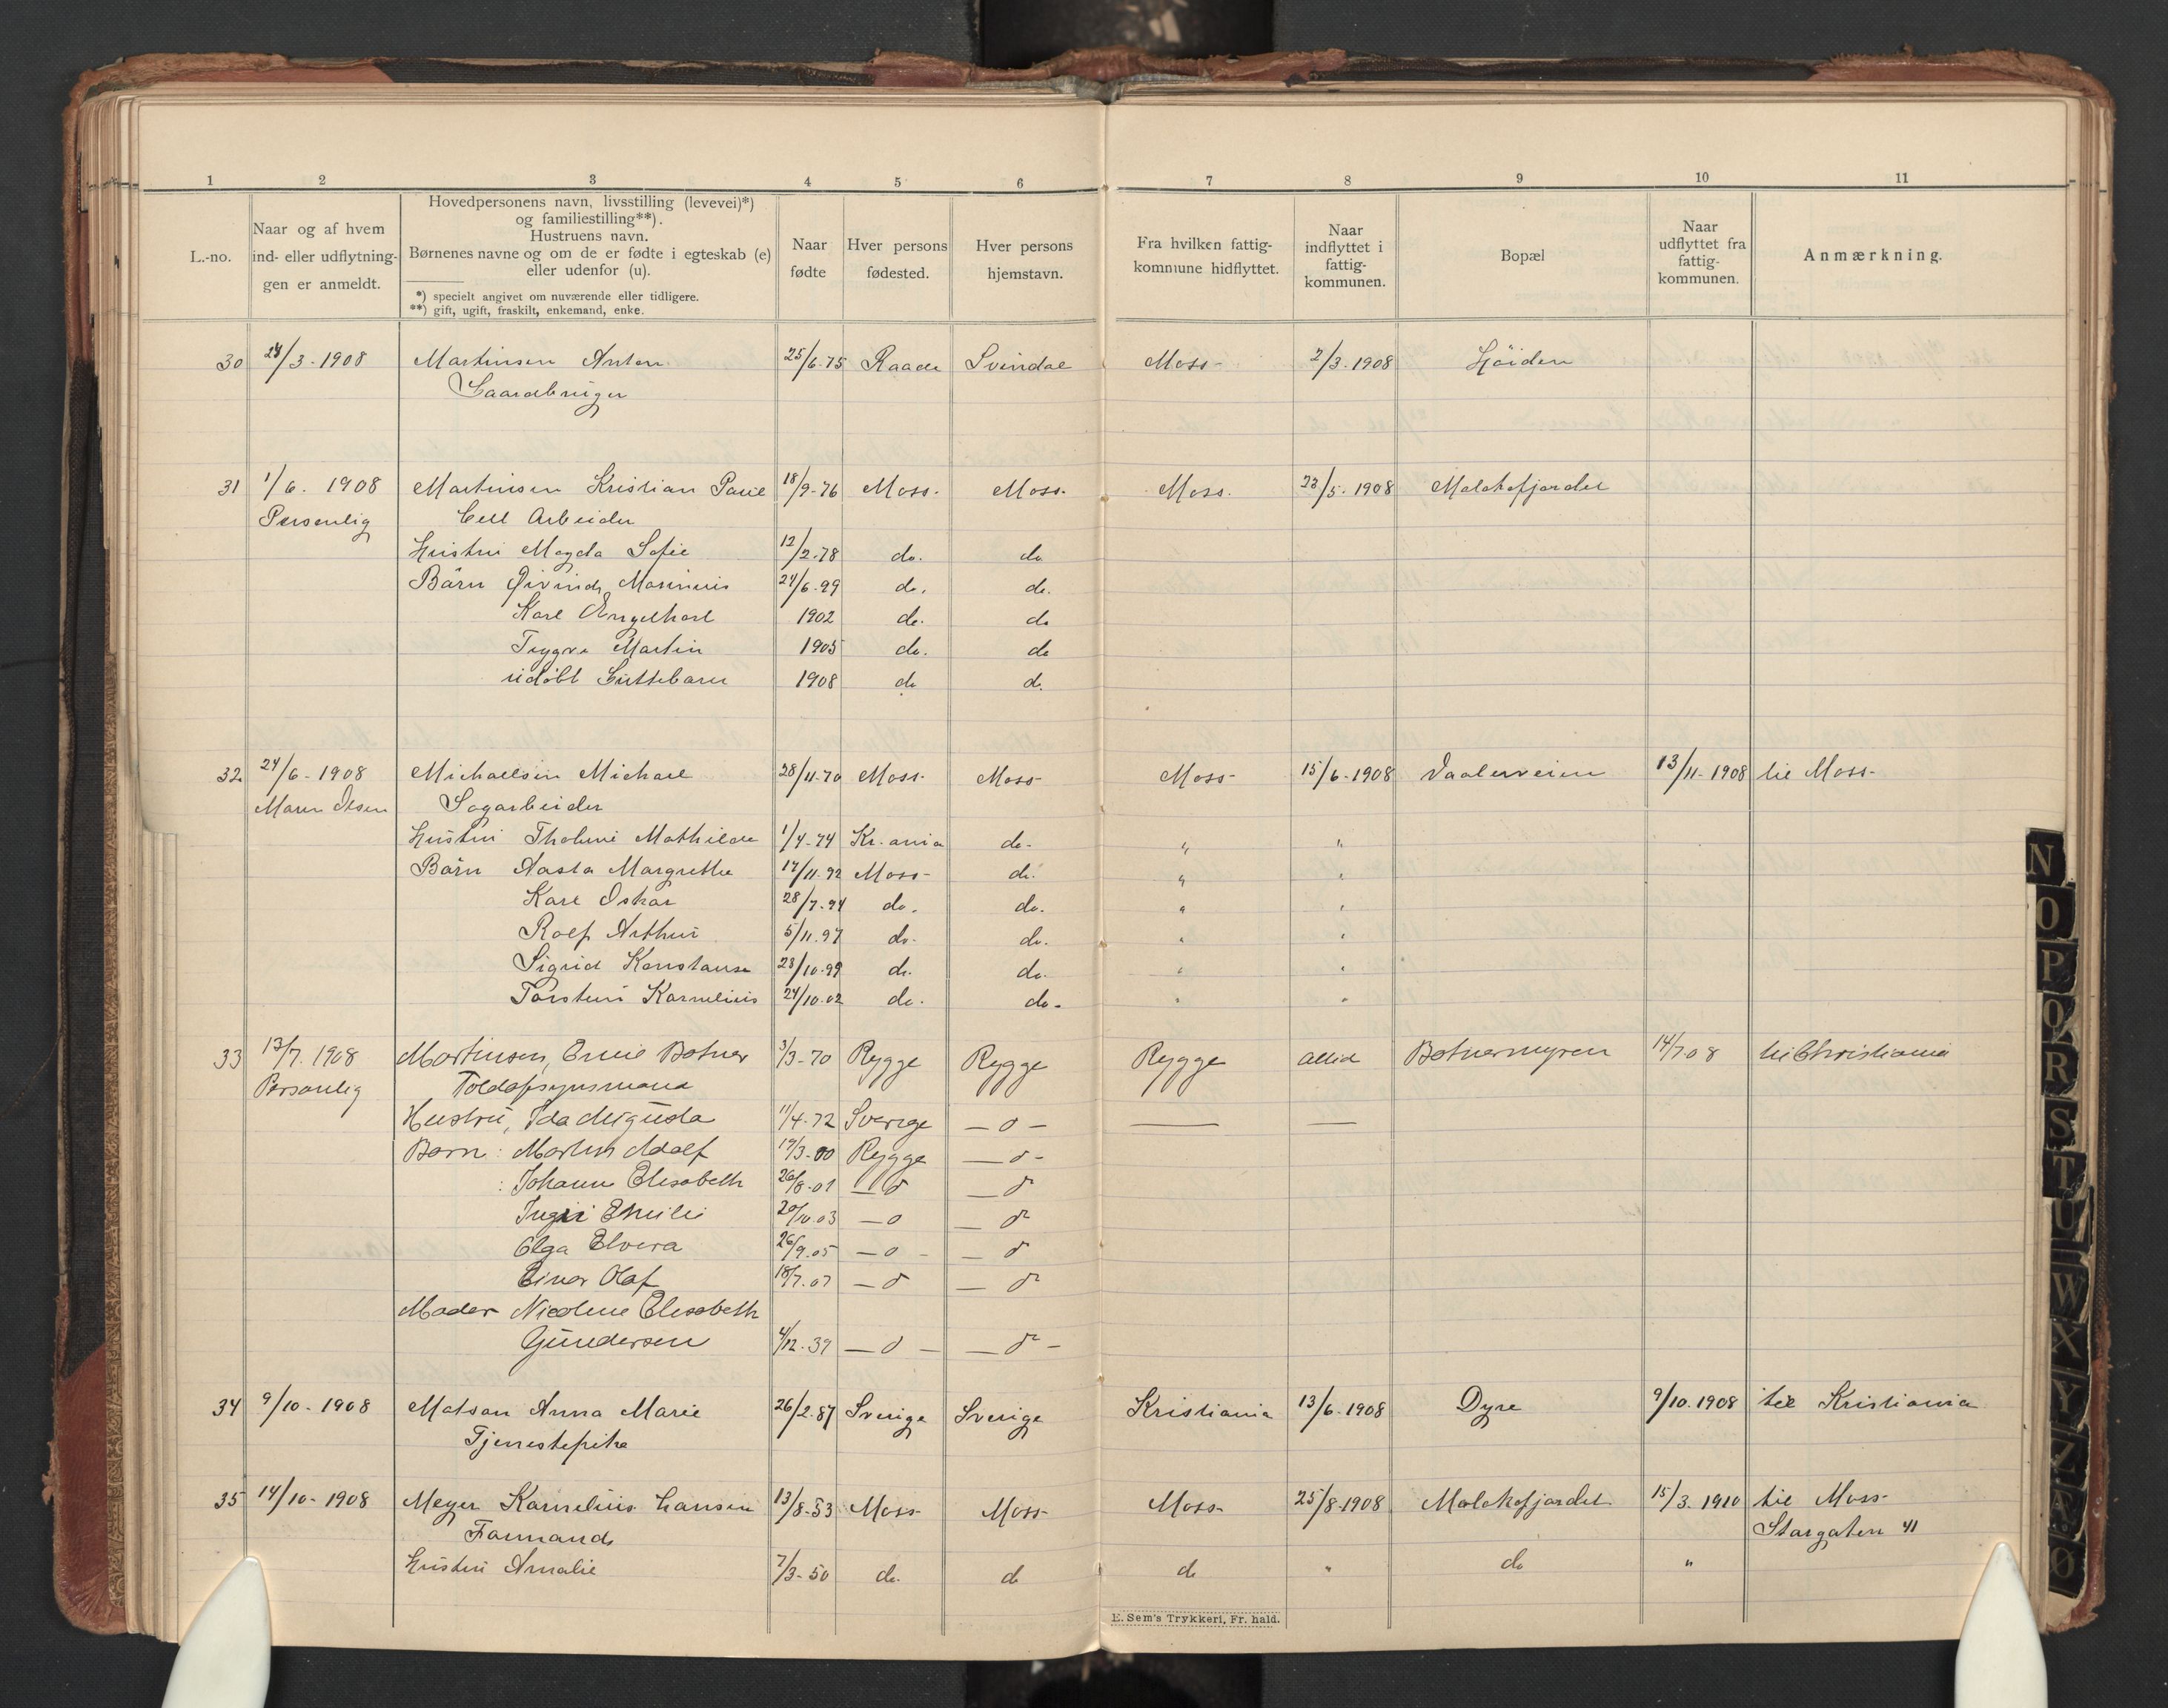 1 2 3 4 5 6 7 8 9 10 11
L.-no.
Naar og af hvem
ind- eller udflytnin-
gen er anmeldt.
Hovedpersonens navn, livsstilling (levevei)*)
og familiestilling**).
Hustruens navn.
Børnenes navne og om de er fødte i egteskab (e)
eller udenfor (u).
*) specielt angivet om nuværende eller tidligere.
**) gift, ugift, fraskilt, enkemand, enke.
Naar
fødte
Hver persons
fødested.
Hver persons
hjemstavn.
Fra hvilken fattig-
kommune hidflyttet.
Naar
indflyttet i
fattig-
kommunen.
Bopæl
Naar
udflyttet fra
fattig-
kommunen.
Anmærkning.
30 24/3-1908 Martinsen Anton 25/6-75 Raade Svindal Moss- 2/3-1908 Höiden
Gaardbruger
31 1/6. 1908 Martinsen Kristian Paul 18/9-76 Moss- Moss- Moss. 23/5-1908 Molokfjordet
Personlig Cell Arbeider
Hustru Magda Sofie 12/2-78 do. do
Börn Øivind Marinius 24/6-99 do. do.
Karl Engelhart 1902 do. do
Trygve Martin 1905 do. do
udöbt Guttebarn 1908 do d.
32 24/6-1908 Michaelsen Michael 28/11-70 Moss- Moss- Moss- 15/6-1908 Vaalerveien 13/11-1908 til Moss-
Maren Olsen Sagarbeider
Hustru Tholine Mathilde 1/4-74 Kr.ania do- " "
Börn Aasta Margrethe 17/11-92 Moss- do. " "
Karl Oskar 28/7-94 do. do. " "
Rolf Arthur 5/11-97 do- do. " "
Sigrid Konstanse 23/10-99 do. do- " "
Torsten Kornelius 24/10-02 do. do- " "
33 13/7. 1908 Martinsen, Emil Botner 3/3-70 Rygge Rygge Rygge altid Botnermyren 14/7 08 til Christiania
Personlig Toldopsynsmand
Hustru, Ida Augusta 11/4-72 Sverige —o—
Børn: Martin Adolf 19/3-00 Rygge —o-
: Johanne Elisabeth 26/8-01 —o —o
Inga Emilie 20/10.03 —o —o
Olga Elvira 26/9.05 —o- —o
Einar Olaf 18/7.07 —o —o
Moder Nicoline Elisabeth
Gundersen 4/12-39 —o— —o-
34 9/10-1908 Matson Anna Marie 26/2-87 Sverige Sverige Kristiania 13/6-1908 Dyre 9/10-1908 til Kristiania
Tjenestepike
35 14/10-1908 Meyer Kornelius Hansen 13/8-53 Moss- Moss- Moss- 25/8-1908 Molokfjordet 15/3-1910 til Moss-
Formand Storgaten 41
Hustru Amalie 7/3-50 do. do do " do "
E. Sem's Trykkeri, Fr. hald.
N
O
P
Q
R
S
T
U
W
X
Y
Z
Æ
Ø